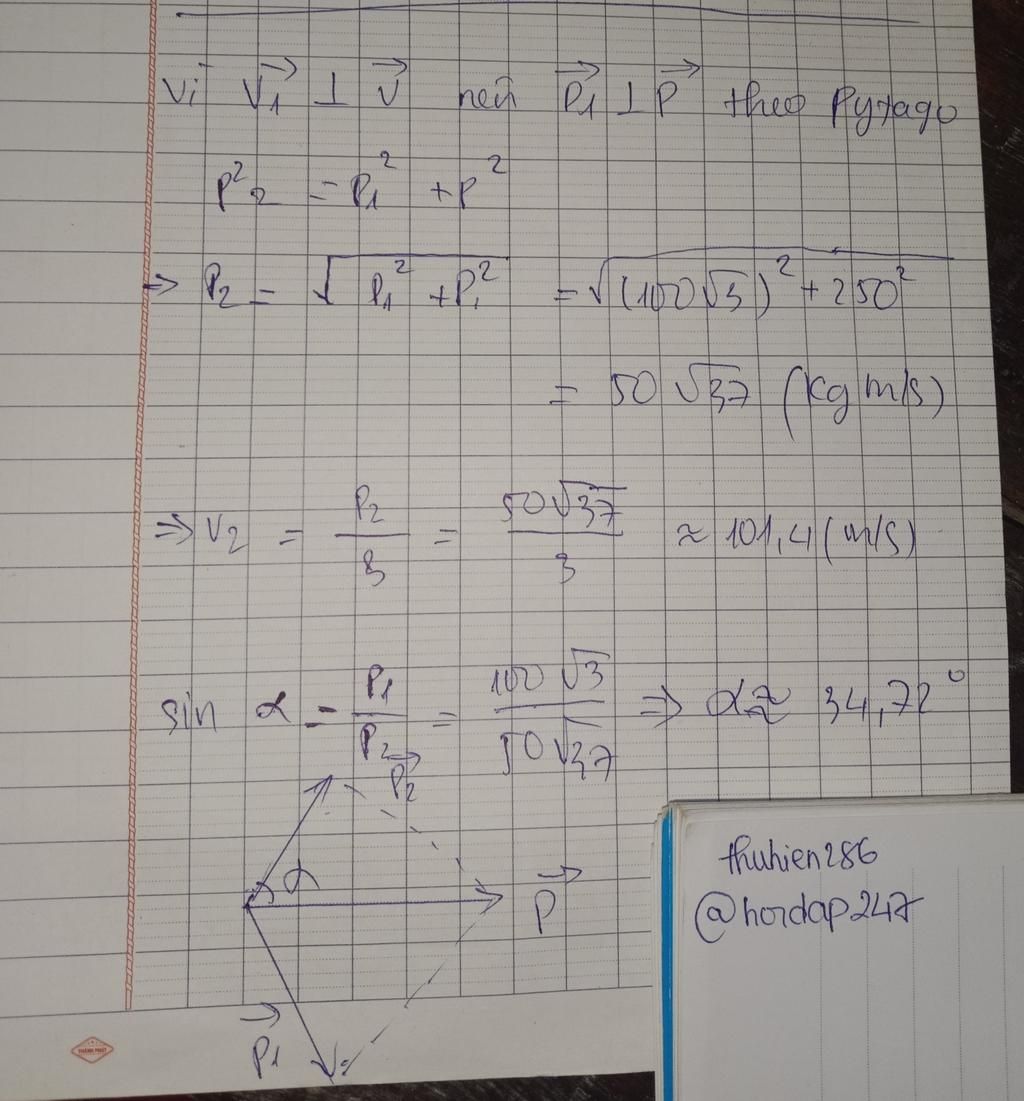 Vì V₁→ ⊥ V→ nên P₁→ ⊥ P→ theo Pytago
P²₂ = P₁² + P²
⇒ P₂ = √(P₁² + P₁²) = √((100√3)² + 250²)
= 50√37 (kg m/s)
⇒ V₂ = P₂/3 = 50√37/3 ≈ 101,4 (m/s)
sin α = P₁/P₂ = 100√3/50√37 ⇒ α ≈ 34,72°
P₂→
α
P→
P₁→
thuhien286
@hoidap247
THÀNH PHÁT